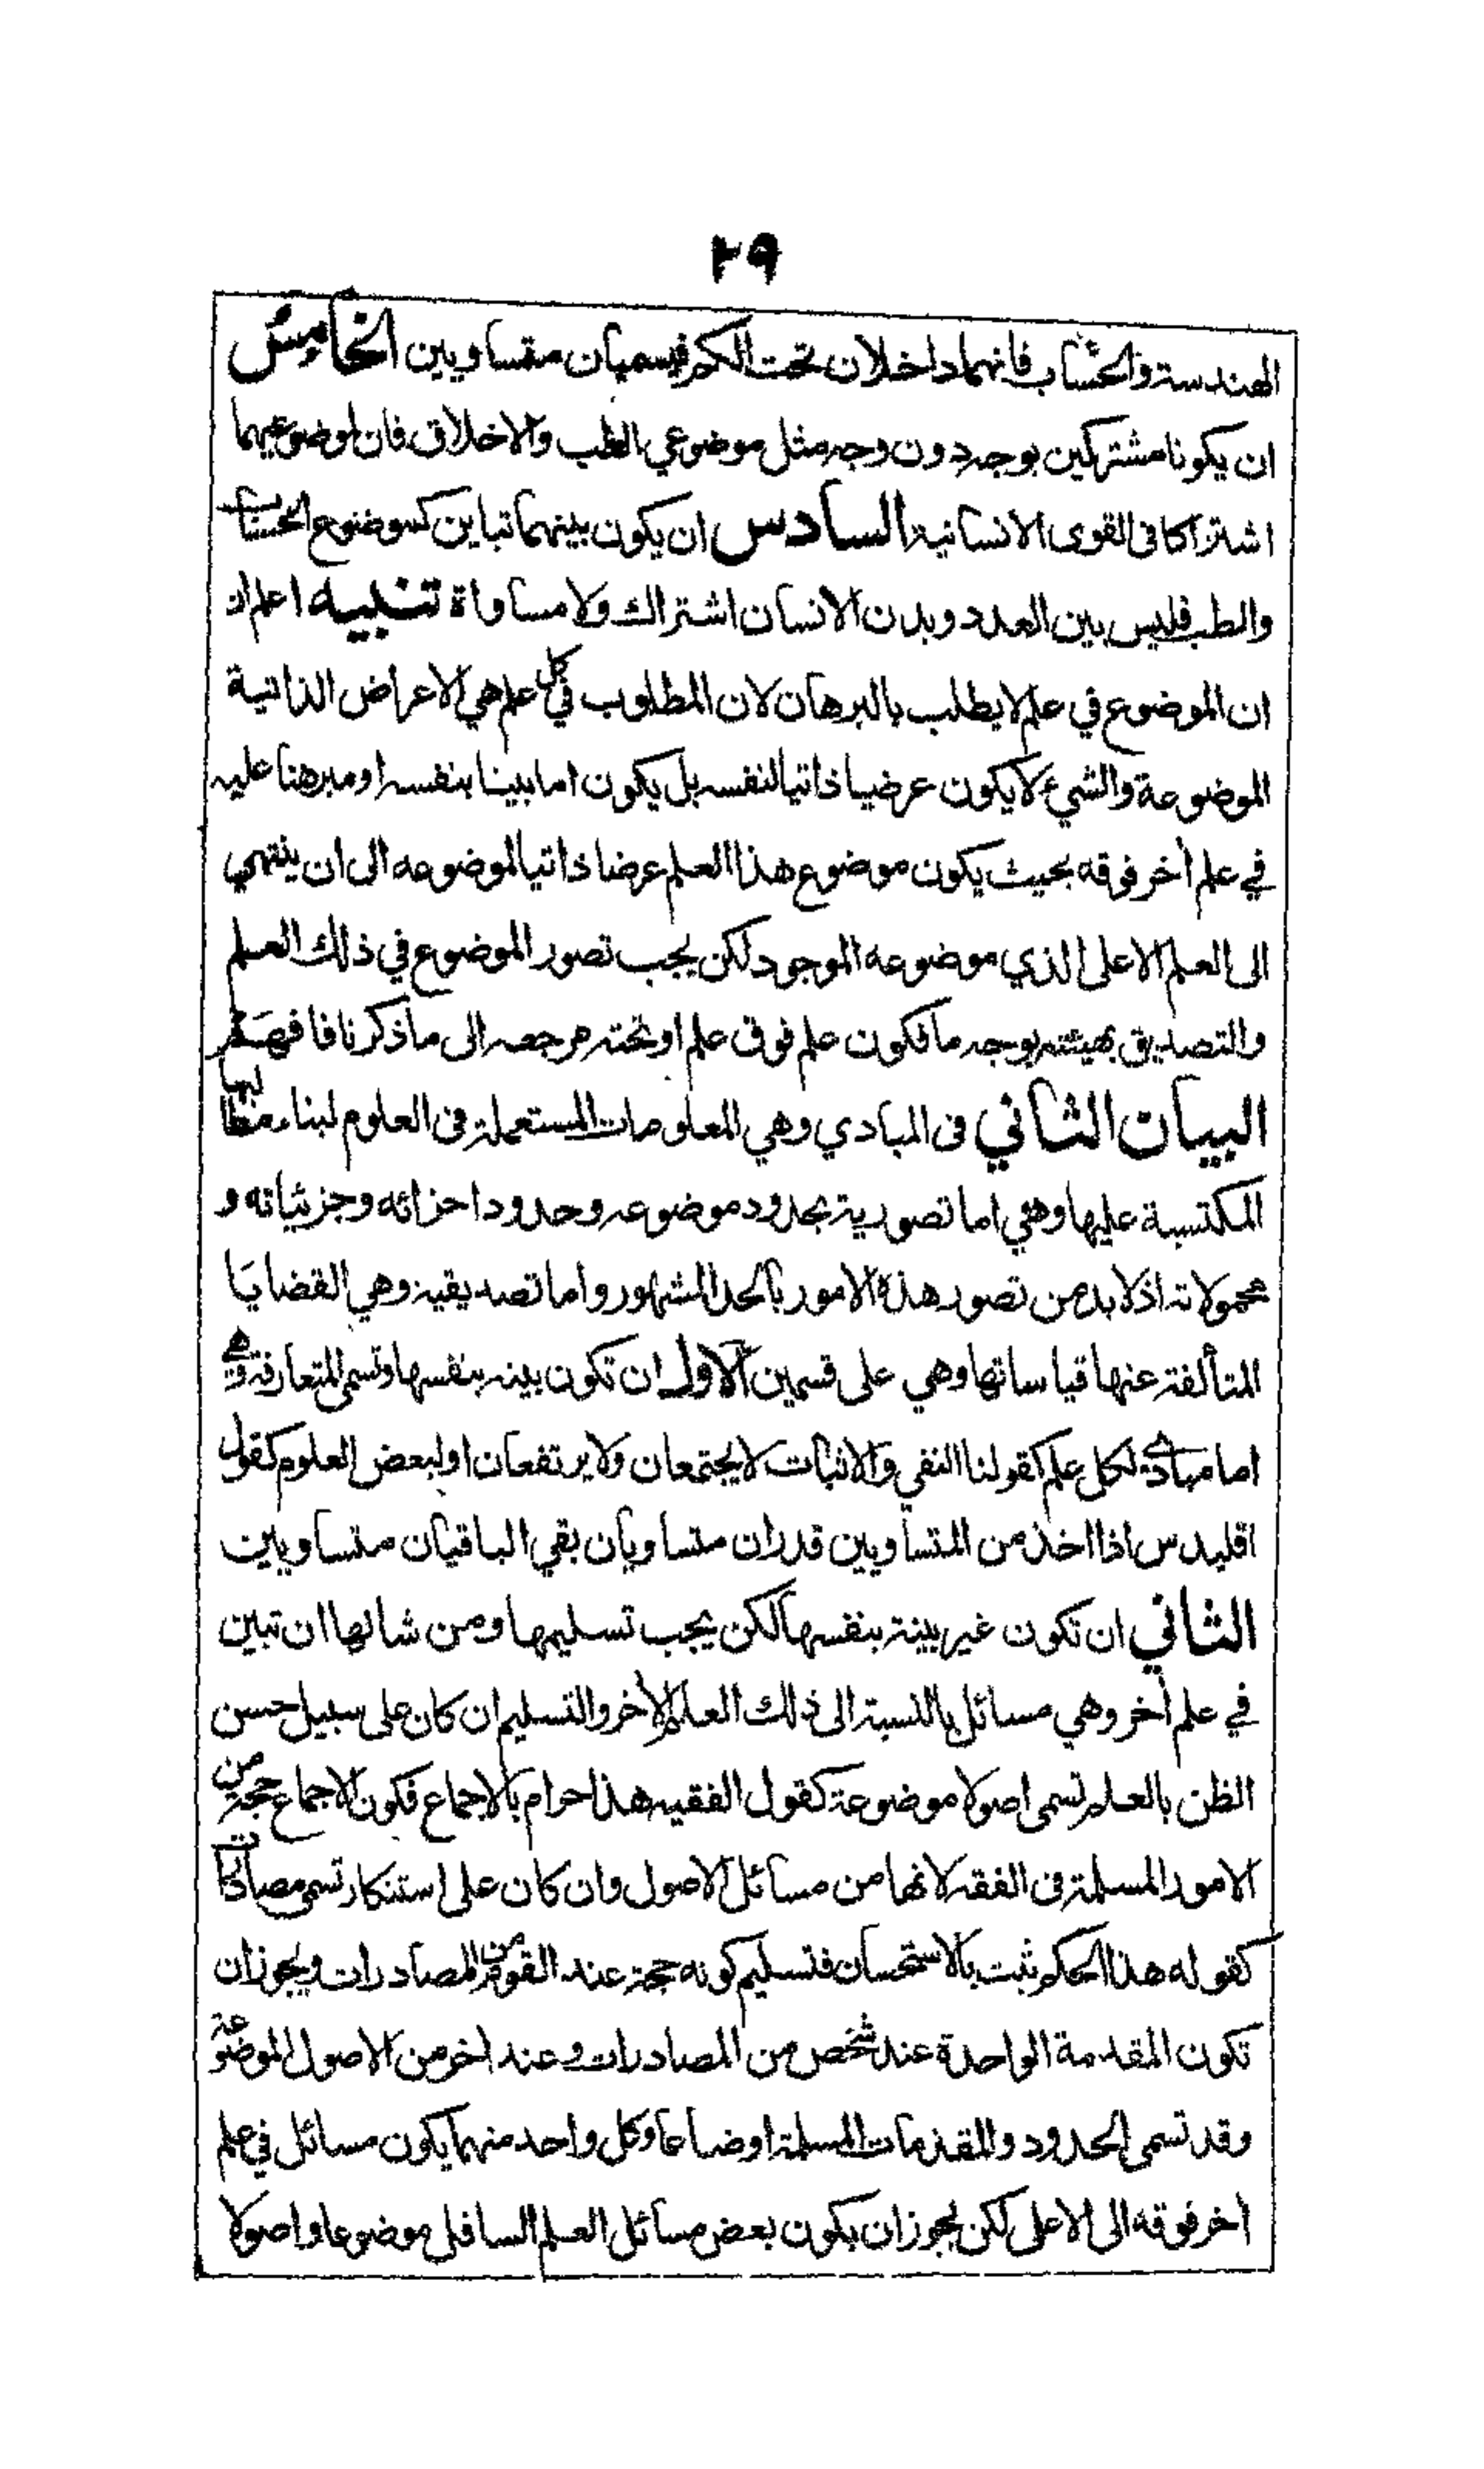 ٢٩
الهندسة والحساب فانهما داخلان تحت الكم فيسميان متساويين الخامس
ان يكونا مشتركين بوجه دون وجه مثل موضوعي الطب والاخلاق فان لموضوعيهما
اشتراكا فى القوى الانسانية السادس ان يكون بينهما تباين كموضوع الحساب
والطب فليس بين العدد وبدن الانسان اشتراك ولا مساواة تنبيه اعلم ان
ان الموضوع في علم لا يطلب بالبرهان لان المطلوب في كل علم هي الاعراض الذاتية
الموضوعة والشيء لا يكون عرضيا ذاتيا لنفسه بل يكون اما بينا بنفسه او مبرهنا عليه
في علم أخر فوقه بحيث يكون موضوع هذا العلم عرضا ذاتيا لموضوعه الى ان ينتهي
الى العلم الاعلى الذي موضوعه الموجود لكن يجب تصور الموضوع في ذلك العلم
والتصديق بهيئته بوجه ما فكون علم فوق علم او تحته مرجعه الى ما ذكرنا فافهم
البيان الثاني فى المبادي وهي المعلومات المستعملة فى العلوم لبناء مطالبها
المكتسبة عليها وهي اما تصورية بحدود موضوعه وحدود اجزائه وجزئياته و
محمولاته اذ لا بد من تصور هذه الامور بالحد المشهور واما تصديقية وهي القضايا
المتألفة عنها قياساتها وهي على قسمين الاول ان تكون بينه بنفسها وتسمى المتعارفة وهي
اما مبادي لكل علم كقولنا النفي والاثبات لا يجتمعان ولا يرتفعان او لبعض العلوم كقول
اقليدس اذا اخذ من المتساويين قدران متساويان بقي الباقيان متساويين
الثاني ان تكون غير بينة بنفسها لكن يجب تسليمها ومن شانها ان تبين
في علم أخر وهي مسائل بالنسبة الى ذلك العلم الأخر والتسليم ان كان على سبيل حسن
الظن بالعلم تسمى اصولا موضوعة كقول الفقيه هذا حرام بالاجماع فكون الاجماع حجة من
الامور المسلمة فى الفقه لانها من مسائل الاصول وان كان على استنكار تسمى مصادرات
كقوله هذا الحكم ثبت بالاستحسان فتسليم كونه حجة عند القوم من المصادرات ويجوز ان
تكون المقدمة الواحدة عند شخص من المصادرات وعند اخر من الاصول الموضوعة
وقد تسمى الحدود والمقدمات المسلمة اوضاعا وكل واحد منهما يكون مسائل في علم
أخر فوقه الى الاعلى لكن يجوز ان يكون بعض مسائل العلم السافل موضوعا واصولا